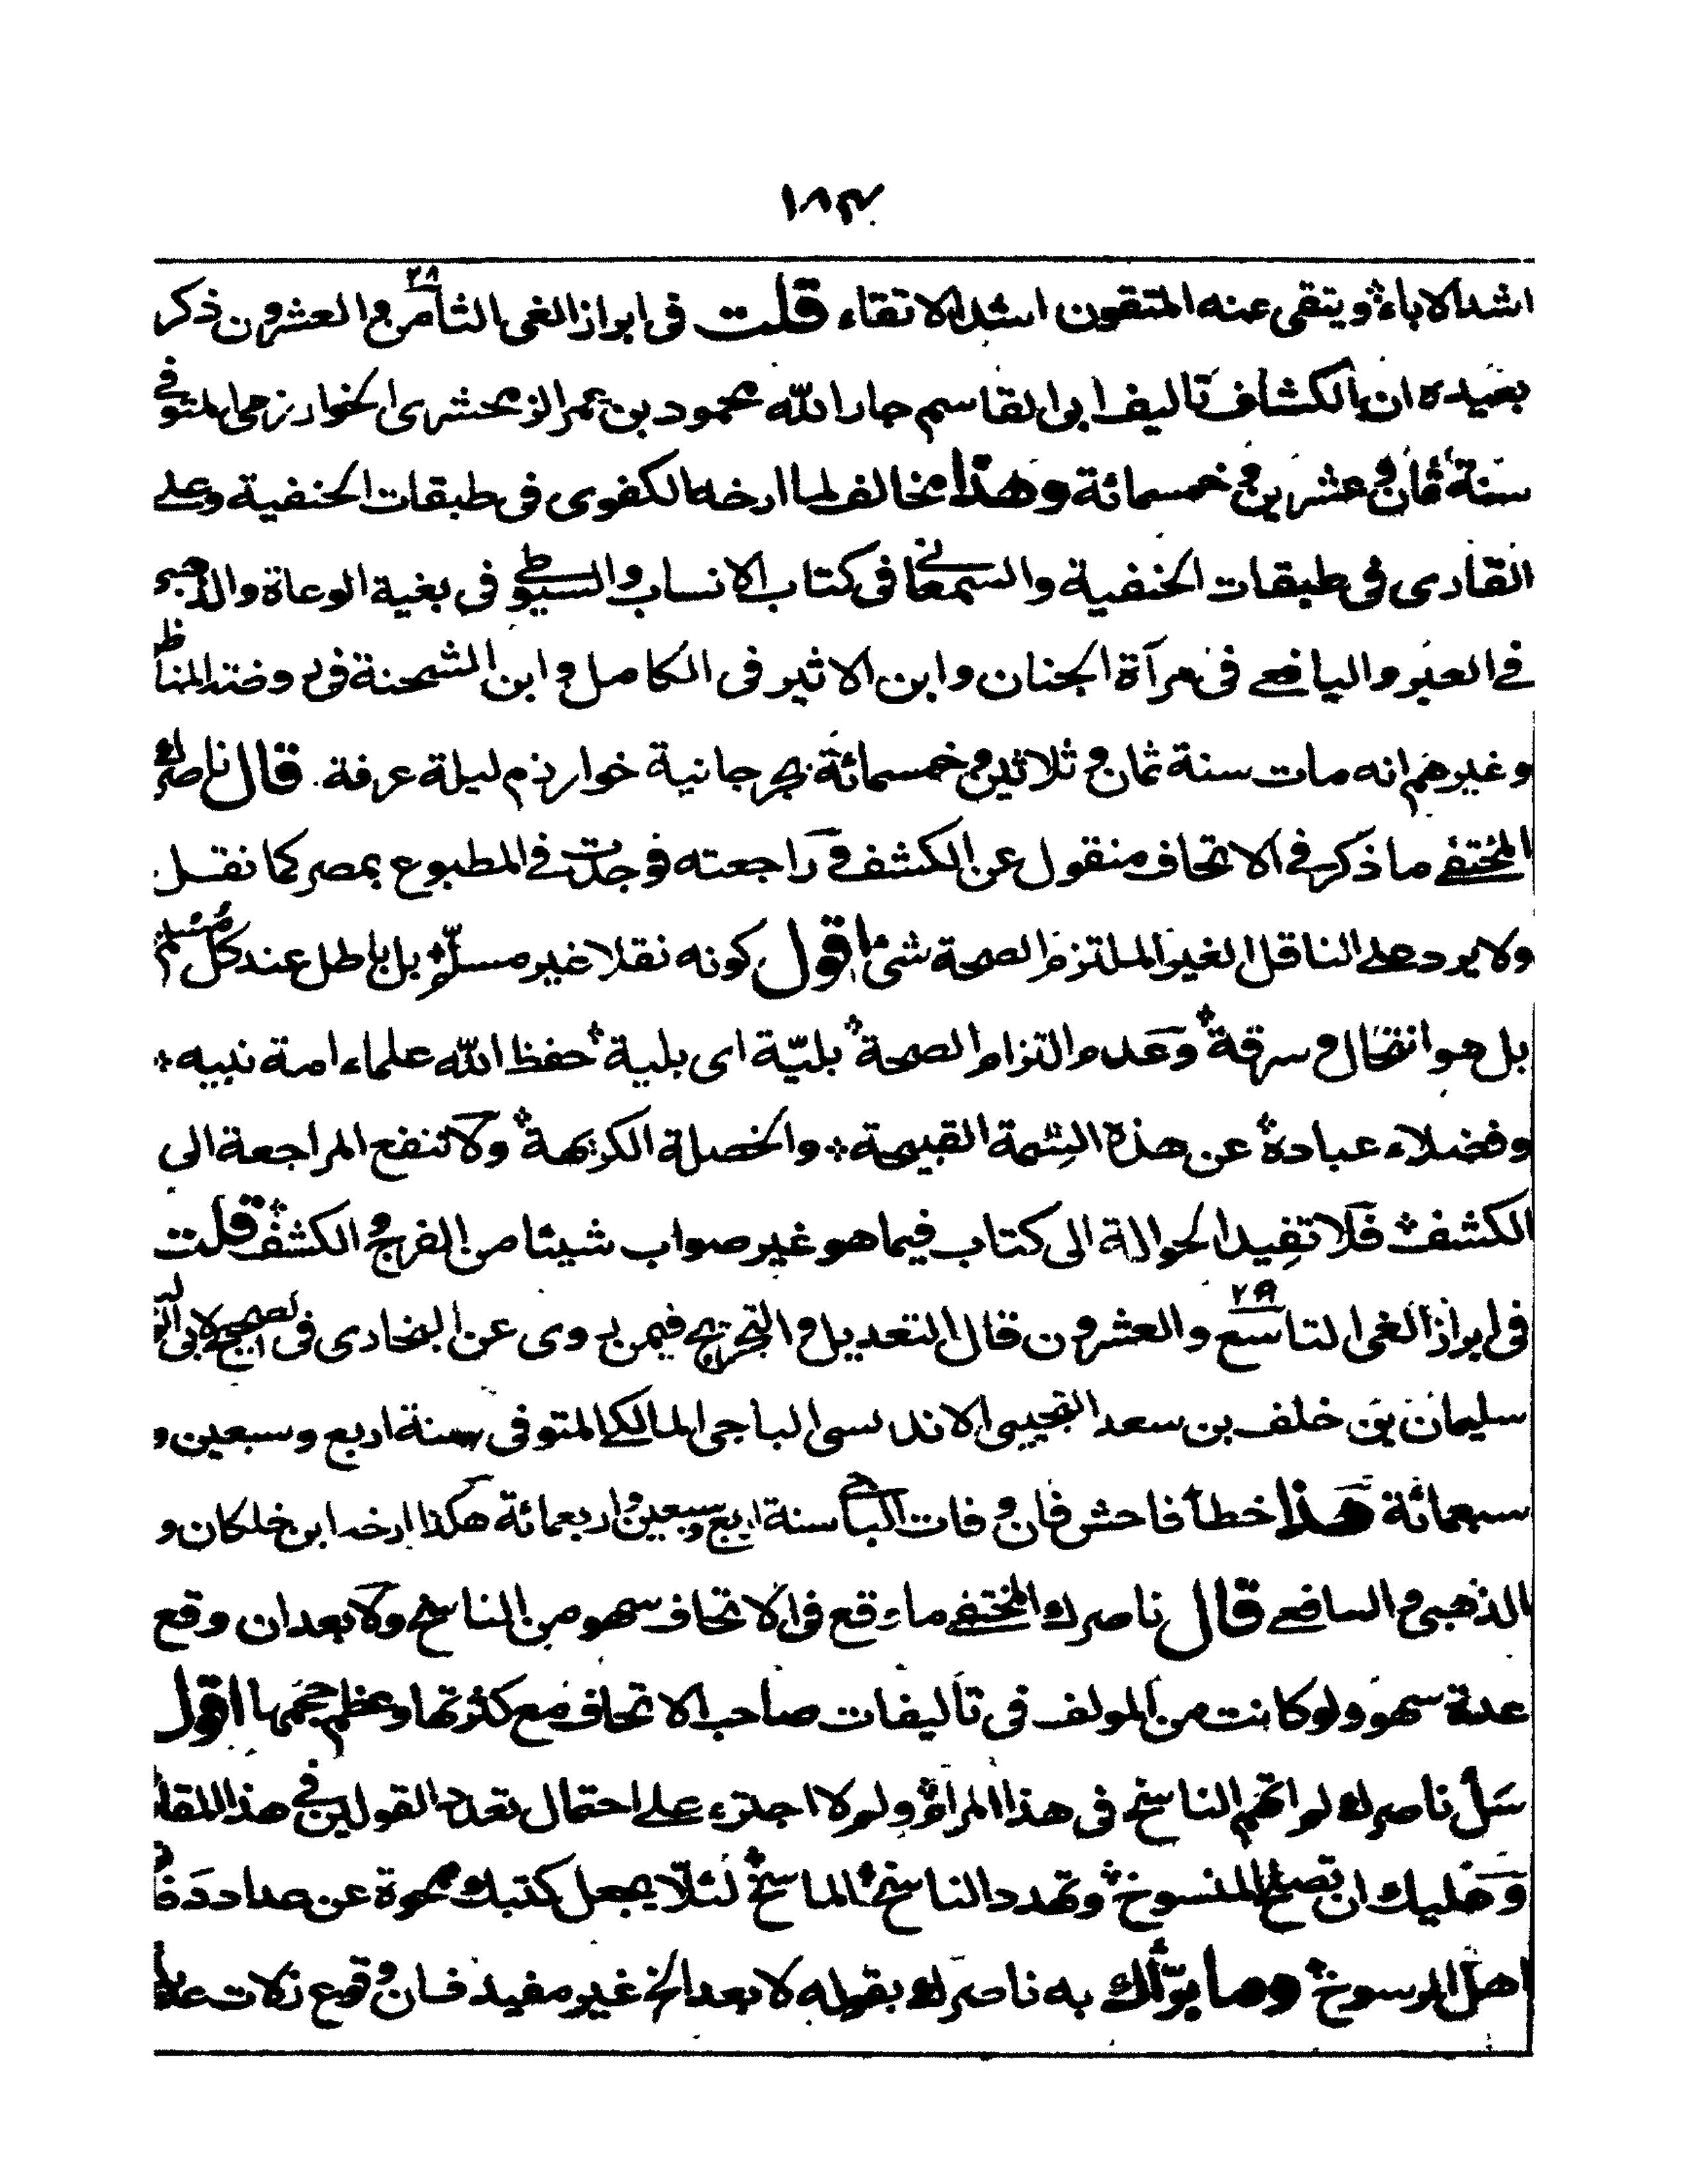 ١٨٣
اشد الاباء ويتقى عنه المتقون اشد الاتقاء قلت فى ابراز الغى الثامن ٢٨ والعشرون ذكر
بعيده ان الكشاف تاليف ابو القاسم جار الله محمود بن عمر الزمخشرى الخوارزمى المتوفى
سنة ثمان وعشرين وخمسمائة وهذا مخالف لما ارخه الكفوى فى طبقات الحنفية وعلى
القارى فى طبقات الحنفية والسمعانى فى كتاب الانساب والسيوطى فى بغية الوعاة والذهبى
فى العبر واليافعى فى مرآة الجنان وابن الاثير فى الكامل وابن الشحنة فى روضة المناظر
وغيرهم انه مات سنة ثمان وثلاثين وخمسمائة بجرجانية خوارزم ليلة عرفة. قال ناصرك
المختفى ما ذكر فى الاتحاف منقول عن الكشف وراجعته فوجدت فى المطبوع بمصر كما نقل
ولا يرد على الناقل الغير الملتزم الصحة شئ اقول كونه نقلا غير مسلّم بل باطل عند كل
بل هو انتحال وسرقة وعدم التزام الصحة بليّة اى بلية حفظ الله علماء امة نبيه
وفضلاء عباده عن هذه الشيمة القبيحة والخصلة الكريهة ولا تنفع المراجعة الى
الكشف فلا تفيد الحوالة الى كتاب فيما هو غير صواب شيئا من الفرج والكشف قلت
فى ابراز الغى التاسع ٢٩ والعشرون قال التعديل والتجريح فيمن روى عن البخارى فى الصحيح لابى الوليد
سليمان بن خلف بن سعد التجيبى الاندلسى الباجى المالكى المتوفى سنة اربع وسبعين و
سبعمائة هذا خطأ فاحش فان وفات الباجى سنة اربع وسبعين واربعمائة هكذا ارخه ابن خلكان و
الذهبى واليافعى قال ناصرك المختفى ما وقع فى الاتحاف سهو من الناسخ ولا بعد ان وقع
عدة سهو ولو كانت من المولف فى تأليفات صاحب الاتحاف مع كثرتها وعظم حجمها اقول
سَل ناصرك لم اتهم الناسخ فى هذا المرام ولم لا اجترء على احتمال تعدد القولين فى هذا المقام
وعليك ان تصلح المنسوخ وتهدد الناسخ الماسخ لئلا يجعل كتبك ممحوة عن مدا
اهل الرسوخ وما برّأك به ناصرك بقوله لا بعد الخ غير مفيد فان وقوع زلات